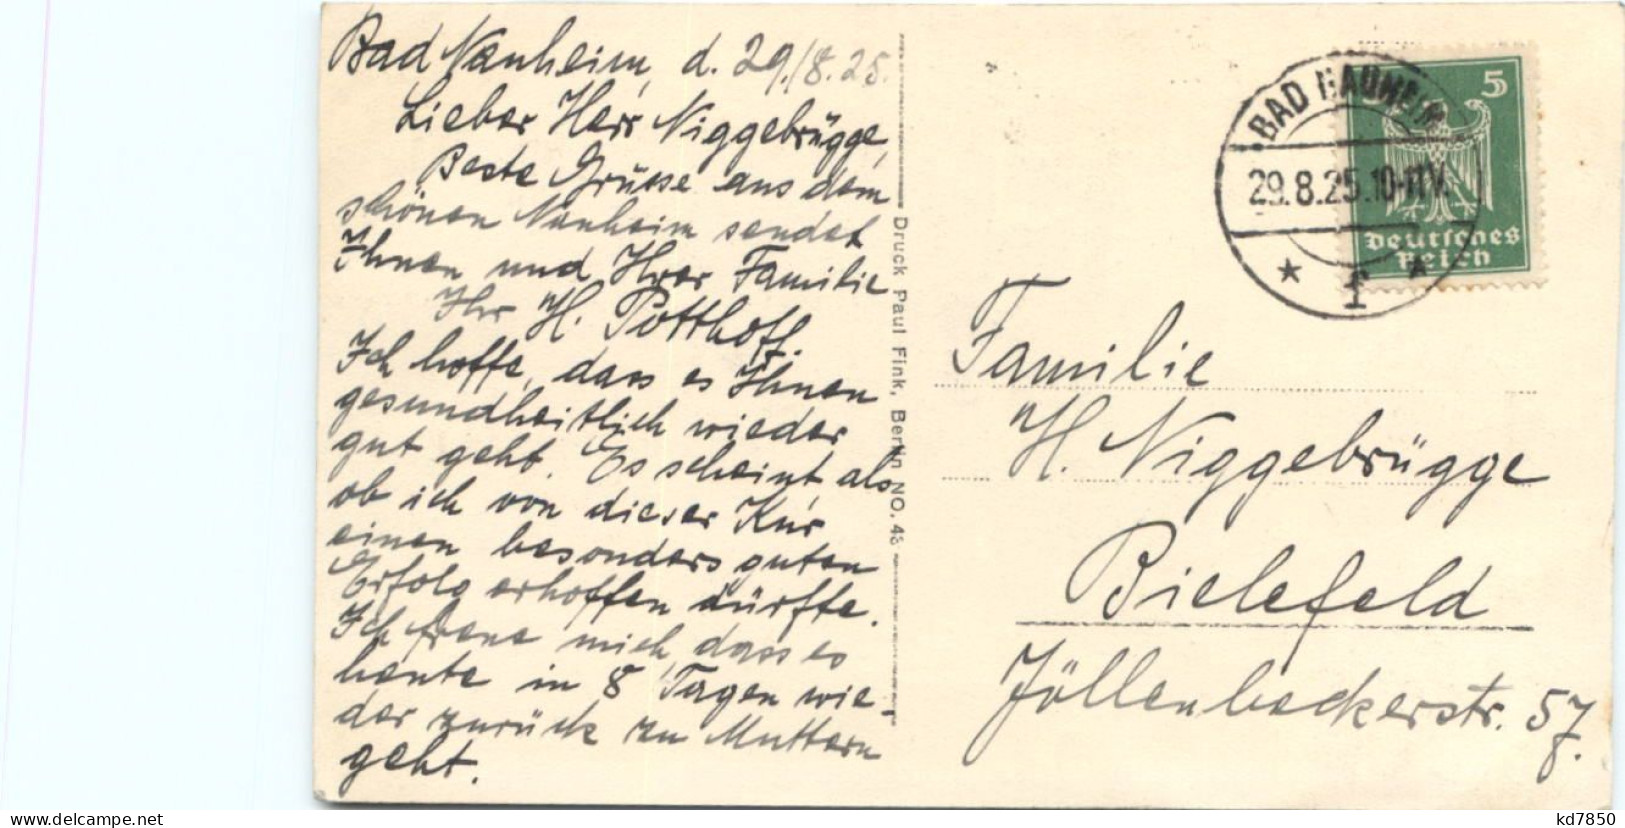 Bad Nauheim, d. 29./8.25.
Lieber Herr Niggebrügge,
Beste Grüsse aus dem
schönen Nauheim sendet
Ihnen und Ihrer Familie
Ihr H. Potthoff.
Ich hoffe, dass es Ihnen
gesundheitlich wieder
gut geht. Es scheint, als
ob ich von dieser Kur
einen besonders guten
Erfolg erhoffen dürfte.
Ich freue mich dass es
heute in 8 Tagen wie-
der zurück zu Muttern
geht.
Druck Paul Fink, Berlin NO. 43
BAD NAUHEIM
29.8.25.10-11V.
* 1 *
5
Deutsches
Reich
Familie
H. Niggebrügge
Bielefeld
Jöllenbeckerstr. 57.
kd7850